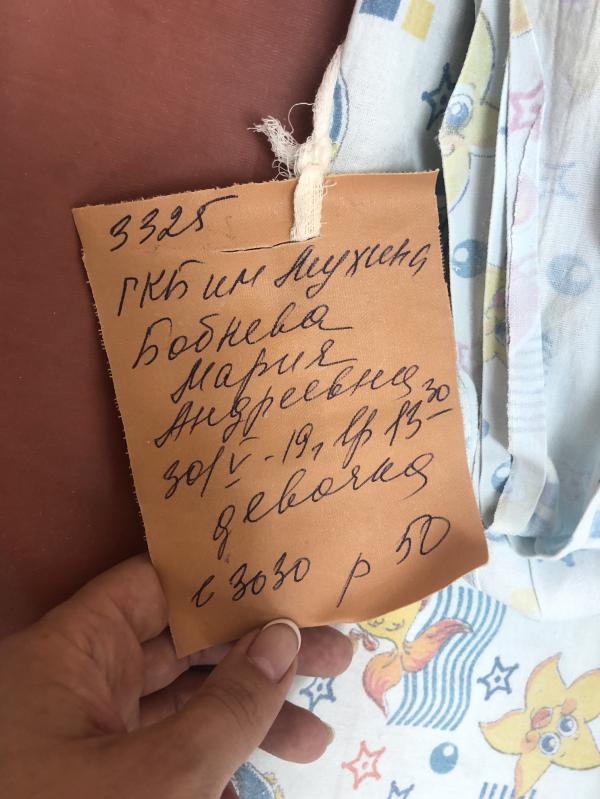 3325
ГКБ им Мухина
Бобнева
Мария
Андреевна
30/V-19г вр 13 30
девочка
в 3030 р 50